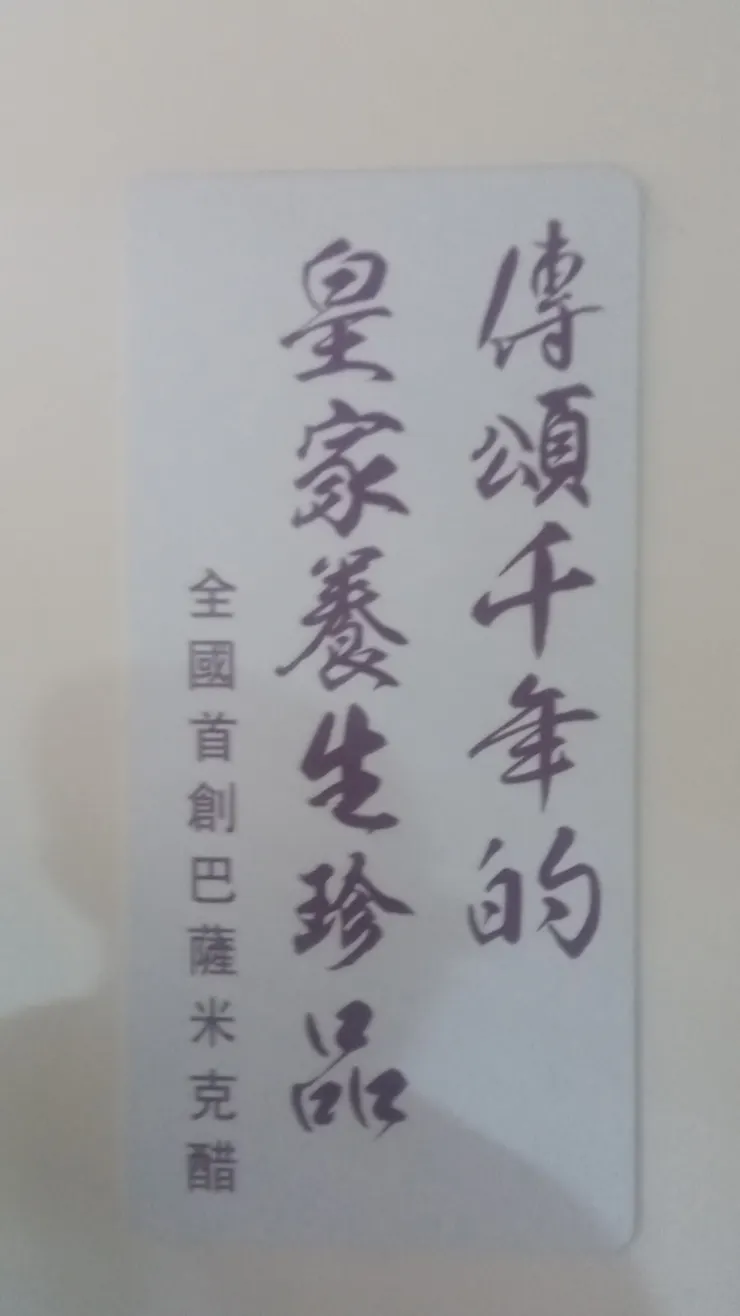 傳頌千年的
皇家養生珍品
全國首創巴薩米克醋